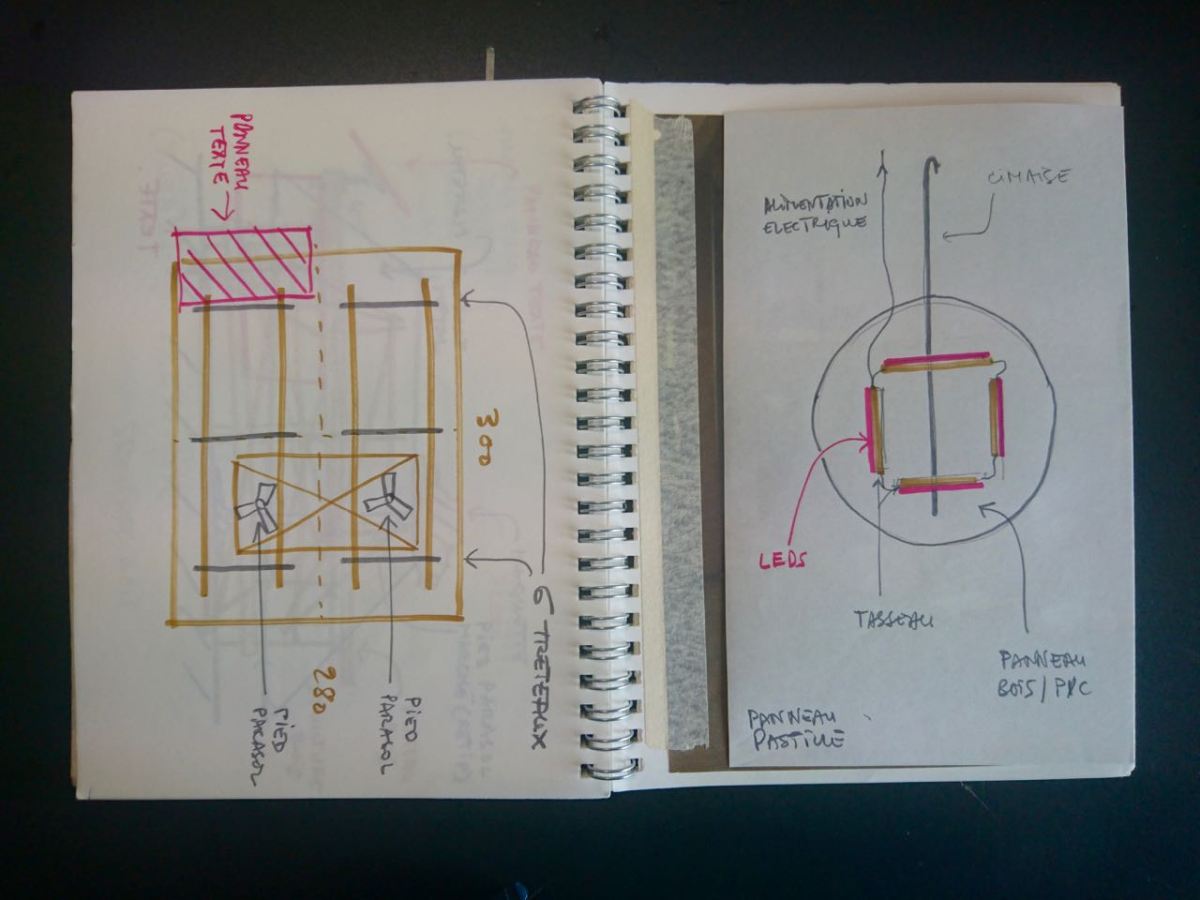 PANNEAU
TEXTE
300
6 TRETEAUX
280
PIED
PARASOL
PIED
PARASOL
ALIMENTATION
ELECTRIQUE
CIMAISE
LEDS
TASSEAU
PANNEAU
BOIS / PVC
PANNEAU
PASTILLE